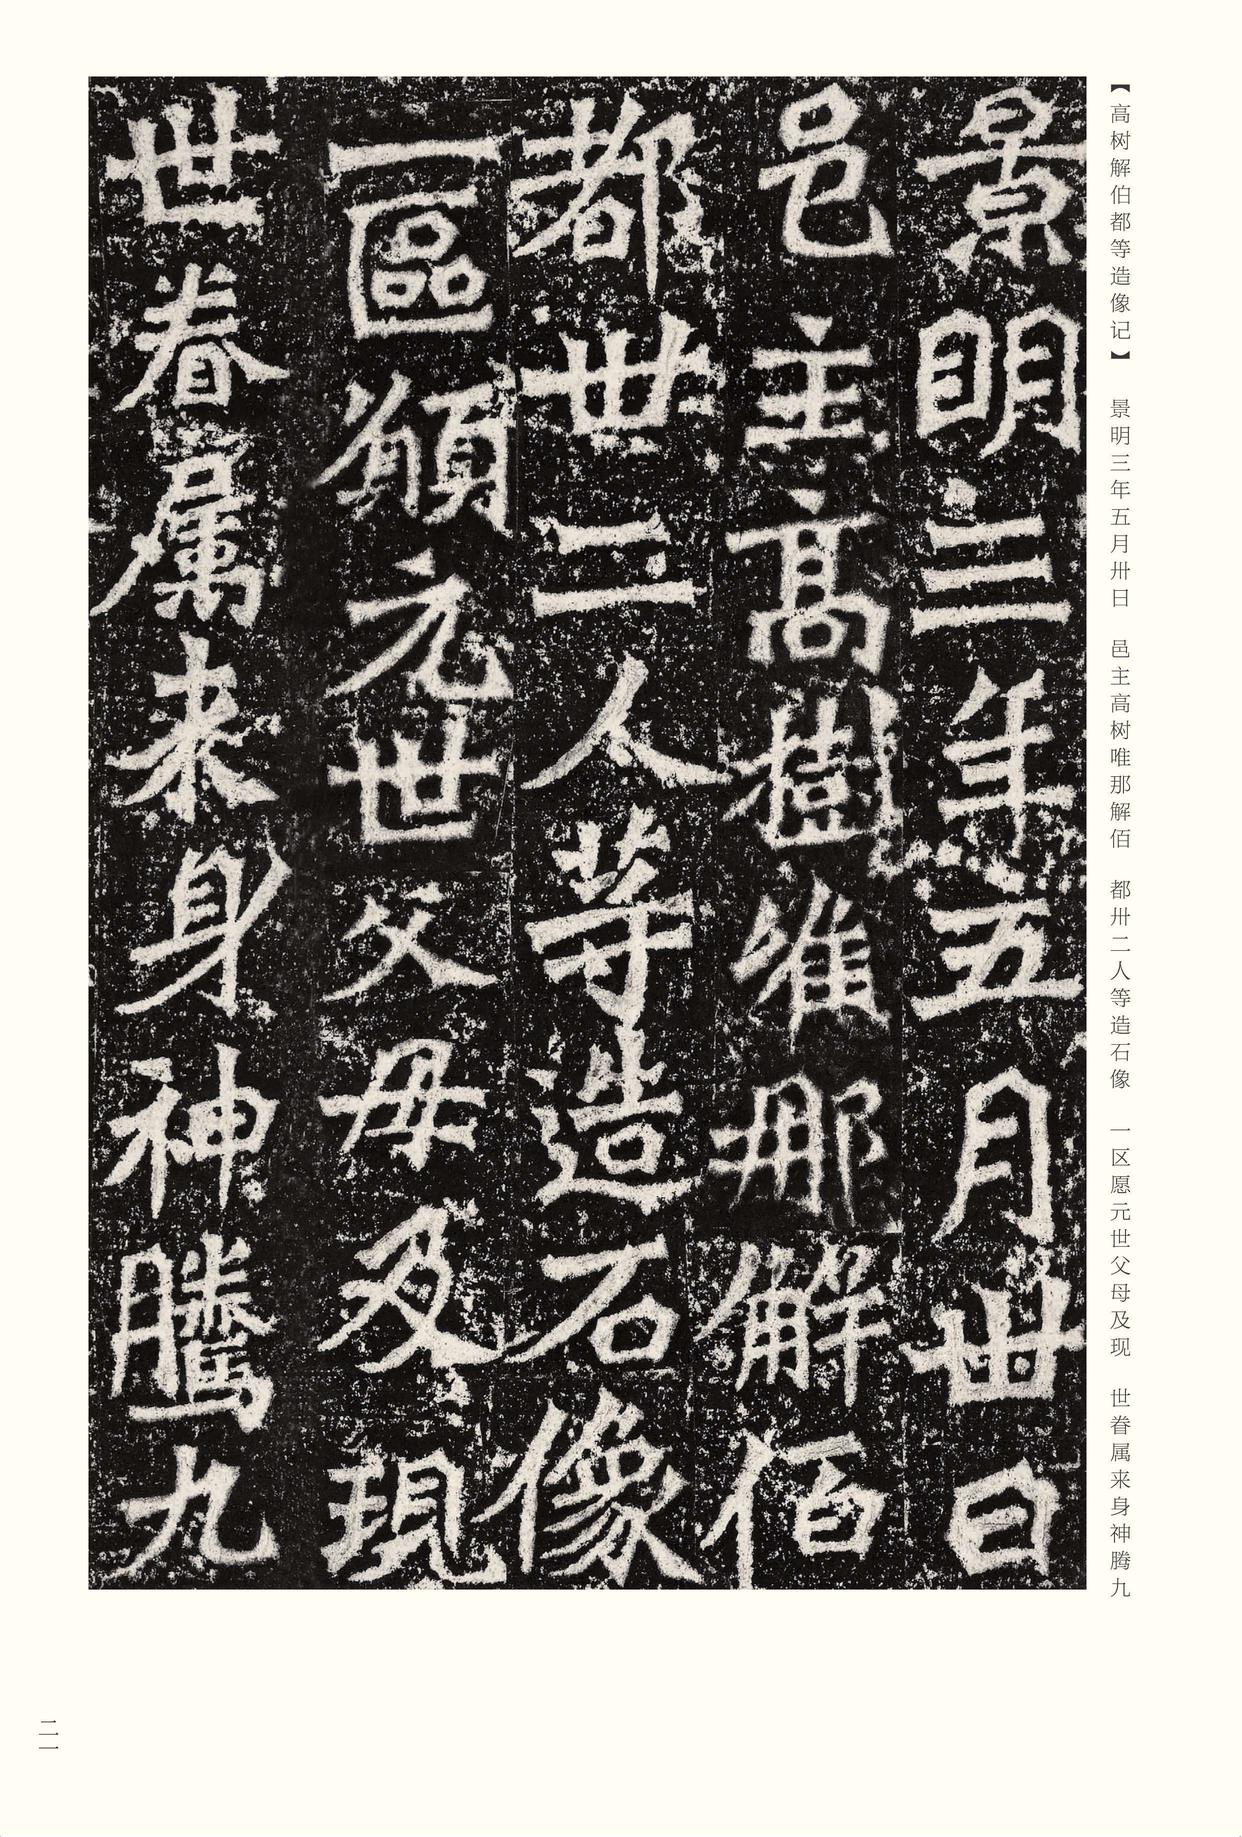 【高树解伯都等造像记】 景明三年五月卅日 邑主高树唯那解佰 都卅二人等造石像 一区愿元世父母及现 世眷属来身神腾九
景明三年五月卅日
邑主高樹唯那解佰
都卅二人等造石像
一區願元世父母及現
世眷属来身神騰九
二一